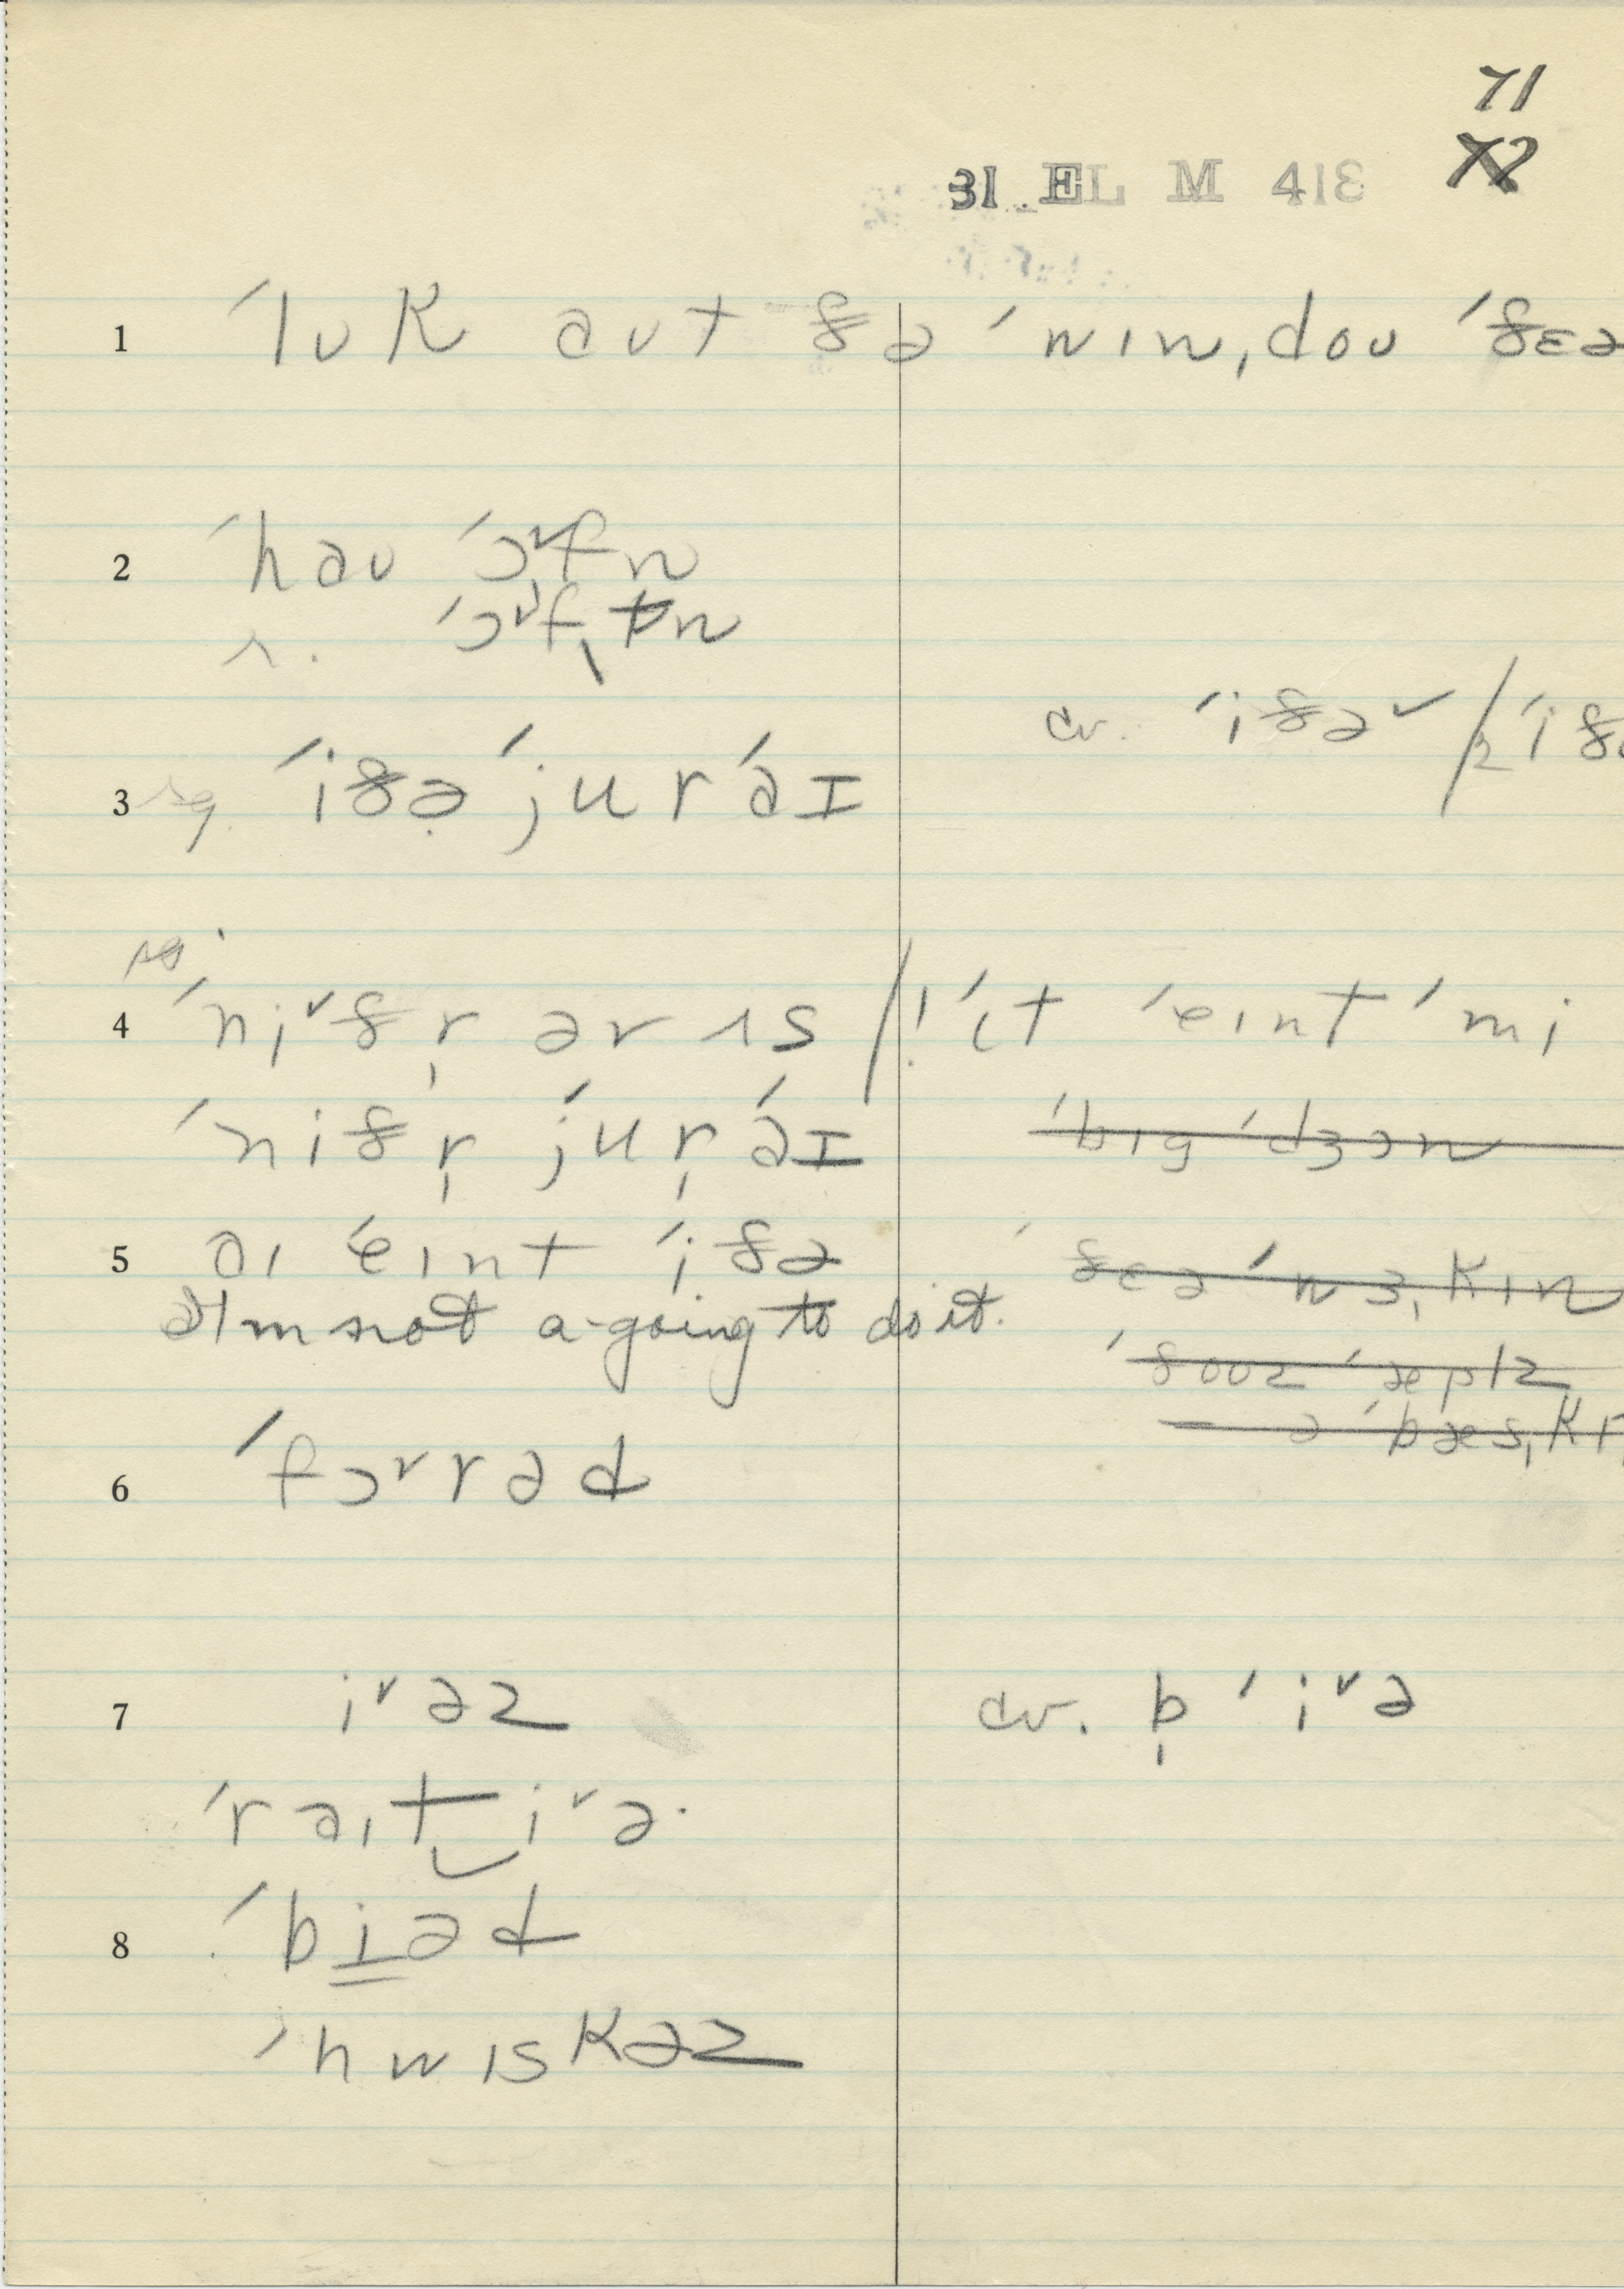 71
72
31 EL M 418
1 ˈlʊk aʊt ðə ˈwɪnˌdoʊ ˈðɛə
2 ˈhaʊ ˈɔ˅fn
r. ˈɔ˅fˌtn
cv. ˈiðə˅ / ˈið
3 sg. ˈiðə ˈju r ˈaɪ
4 ˈni˅ðr̩ ər ɪs / ! ˈɪt ˈeɪnt ˈmi
ˈniðr̩ ˈju r̩ ˈaɪ
ˈbɪg ˈdʒɔn
5 aɪ ˈeɪnt ˈiðə
ˈðɛə ˈwɜˌkɪn
I'm not a-going to do it.
ˈðoʊz ˈæplz
ə ˈbæsˌk
6 ˈfɔ˅rəd
7 i˅əz
cv. b̩ ˈi˅ə
ˈraɪt‿i˅ə·
8 ˈbiəd
ˈhwɪskəz